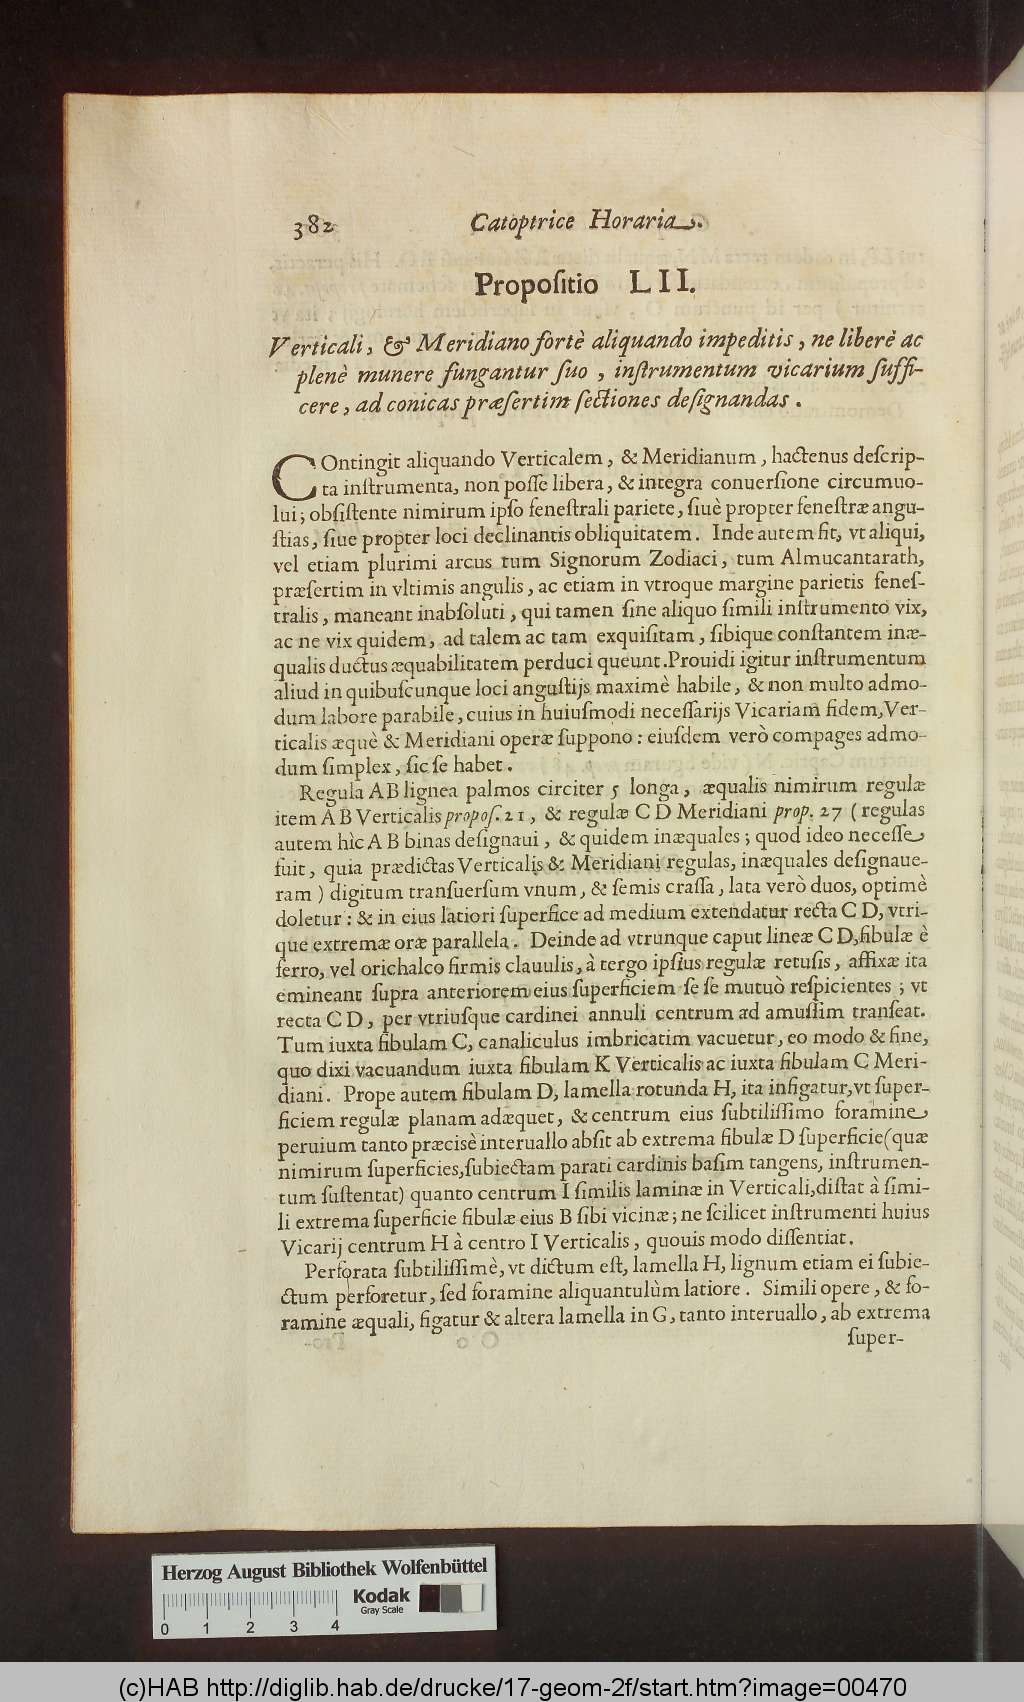 382 Catoptrice Horaria.
Propoſitio LII.
Verticali, & Meridiano fortè aliquando impeditis, ne liberè ac
plenè munere fungantur ſuo, inſtrumentum vicarium ſuffi-
cere, ad conicas præſertim ſectiones deſignandas.
COntingit aliquando Verticalem, & Meridianum, hactenus deſcrip-
ta inſtrumenta, non poſſe libera, & integra conuerſione circumuo-
lui; obſiſtente nimirum ipſo feneſtrali pariete, ſiuè propter feneſtræ angu-
ſtias, ſiue propter loci declinantis obliquitatem. Inde autem fit, vt aliqui,
vel etiam plurimi arcus tum Signorum Zodiaci, tum Almucantarath,
præſertim in vltimis angulis, ac etiam in vtroque margine parietis feneſ-
tralis, maneant inabſoluti, qui tamen ſine aliquo ſimili inſtrumento vix,
ac ne vix quidem, ad talem ac tam exquiſitam, ſibique conſtantem inæ-
qualis ductus æquabilitatem perduci queunt. Prouidi igitur inſtrumentum
aliud in quibuſcunque loci anguſtijs maximè habile, & non multo admo-
dum labore parabile, cuius in huiuſmodi neceſſarijs Vicariam fidem, Ver-
ticalis æquè & Meridiani operæ ſuppono: eiuſdem verò compages admo-
dum ſimplex, ſic ſe habet.
Regula AB lignea palmos circiter 5 longa, æqualis nimirum regulæ
item AB Verticalis propoſ. 21, & regulæ CD Meridiani prop. 27 (regulas
autem hìc AB binas deſignaui, & quidem inæquales; quod ideo neceſſe
fuit, quia prædictas Verticalis & Meridiani regulas, inæquales deſignaue-
ram) digitum tranſuerſum vnum, & ſemis craſſa, lata verò duos, optimè
doletur: & in eius latiori ſuperfice ad medium extendatur recta CD, vtri-
que extremæ oræ parallela. Deinde ad vtrunque caput lineæ CD, fibulæ è
ferro, vel orichalco firmis clauulis, à tergo ipſius regulæ retuſis, affixæ ita
emineant ſupra anteriorem eius ſuperficiem ſe ſe mutuò reſpicientes; vt
recta CD, per vtriuſque cardinei annuli centrum ad amuſſim tranſeat.
Tum iuxta fibulam C, canaliculus imbricatim vacuetur, eo modo & fine,
quo dixi vacuandum iuxta fibulam K Verticalis ac iuxta fibulam C Meri-
diani. Prope autem fibulam D, lamella rotunda H, ita infigatur, vt ſuper-
ficiem regulæ planam adæquet, & centrum eius ſubtiliſſimo foramine
peruium tanto præcisè interuallo abſit ab extrema fibulæ D ſuperficie (quæ
nimirum ſuperficies, ſubiectam parati cardinis baſim tangens, inſtrumen-
tum ſuſtentat) quanto centrum I ſimilis laminæ in Verticali, diſtat à ſimi-
li extrema ſuperficie fibulæ eius B ſibi vicinæ; ne ſcilicet inſtrumenti huius
Vicarij centrum H à centro I Verticalis, quouis modo diſſentiat.
Perforata ſubtiliſſimè, vt dictum eſt, lamella H, lignum etiam ei ſubie-
ctum perforetur, ſed foramine aliquantulùm latiore. Simili opere, & fo-
ramine æquali, figatur & altera lamella in G, tanto interuallo, ab extrema
ſuper-
Herzog August Bibliothek Wolfenbüttel
Kodak
Gray Scale
0 1 2 3 4
(c)HAB http://diglib.hab.de/drucke/17-geom-2f/start.htm?image=00470